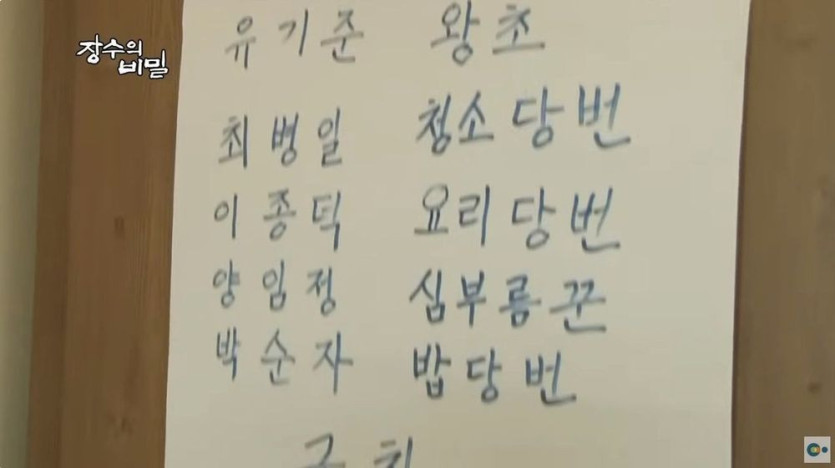 장수의
비밀
유기준 왕초
최병일 청소당번
이종턱 요리당번
양임정 심부름꾼
박순자 밥당번